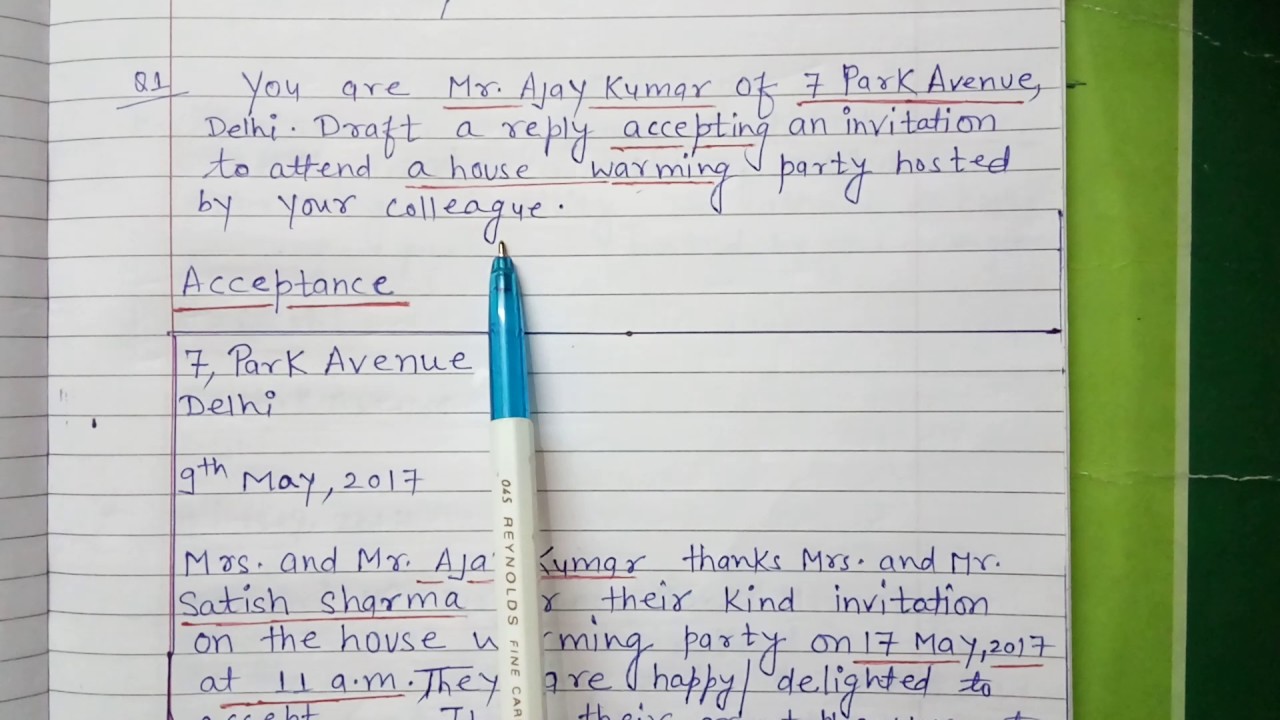 Q1 You are Mr. Ajay Kumar of 7 Park Avenue,
Delhi. Draft a reply accepting an invitation
to attend a house warming party hosted
by your colleague.
Acceptance
7, Park Avenue
Delhi
9th May, 2017
Mrs. and Mr. Kumar thanks Mrs. and Mr.
Satish Sharma their kind invitation
on the house party on 17 May, 2017
at 11 a.m. They are happy/ delighted to
045 REYNOLDS FINE CAR